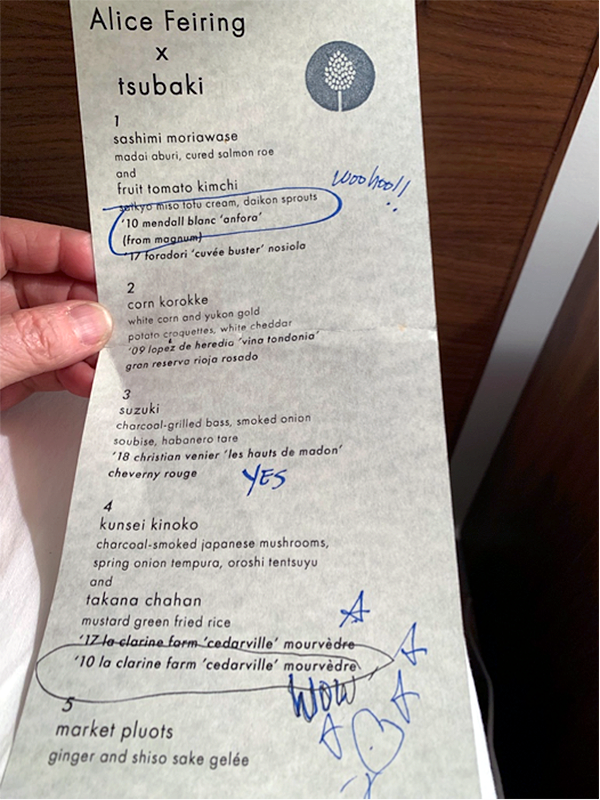 Alice Feiring
x
tsubaki
1
sashimi moriawase
madai aburi, cured salmon roe
and
fruit tomato kimchi
woohoo!!
saikyo miso tofu cream, daikon sprouts
'10 mendall blanc 'anfora'
(from magnum)
'17 foradori 'cuvée buster' nosiola
2
corn korokke
white corn and yukon gold
potato croquettes, white cheddar
'09 lopez de heredia 'vina tondonia'
gran reserva rioja rosado
3
suzuki
charcoal-grilled bass, smoked onion
soubise, habanero tare
'18 christian venier 'les hauts de madon'
cheverny rouge
YES
4
kunsei kinoko
charcoal-smoked japanese mushrooms,
spring onion tempura, oroshi tentsuyu
and
takana chahan
mustard green fried rice
'17 la clarine farm 'cedarville' mourvèdre
'10 la clarine farm 'cedarville' mourvèdre
WOW
5
market pluots
ginger and shiso sake gelée